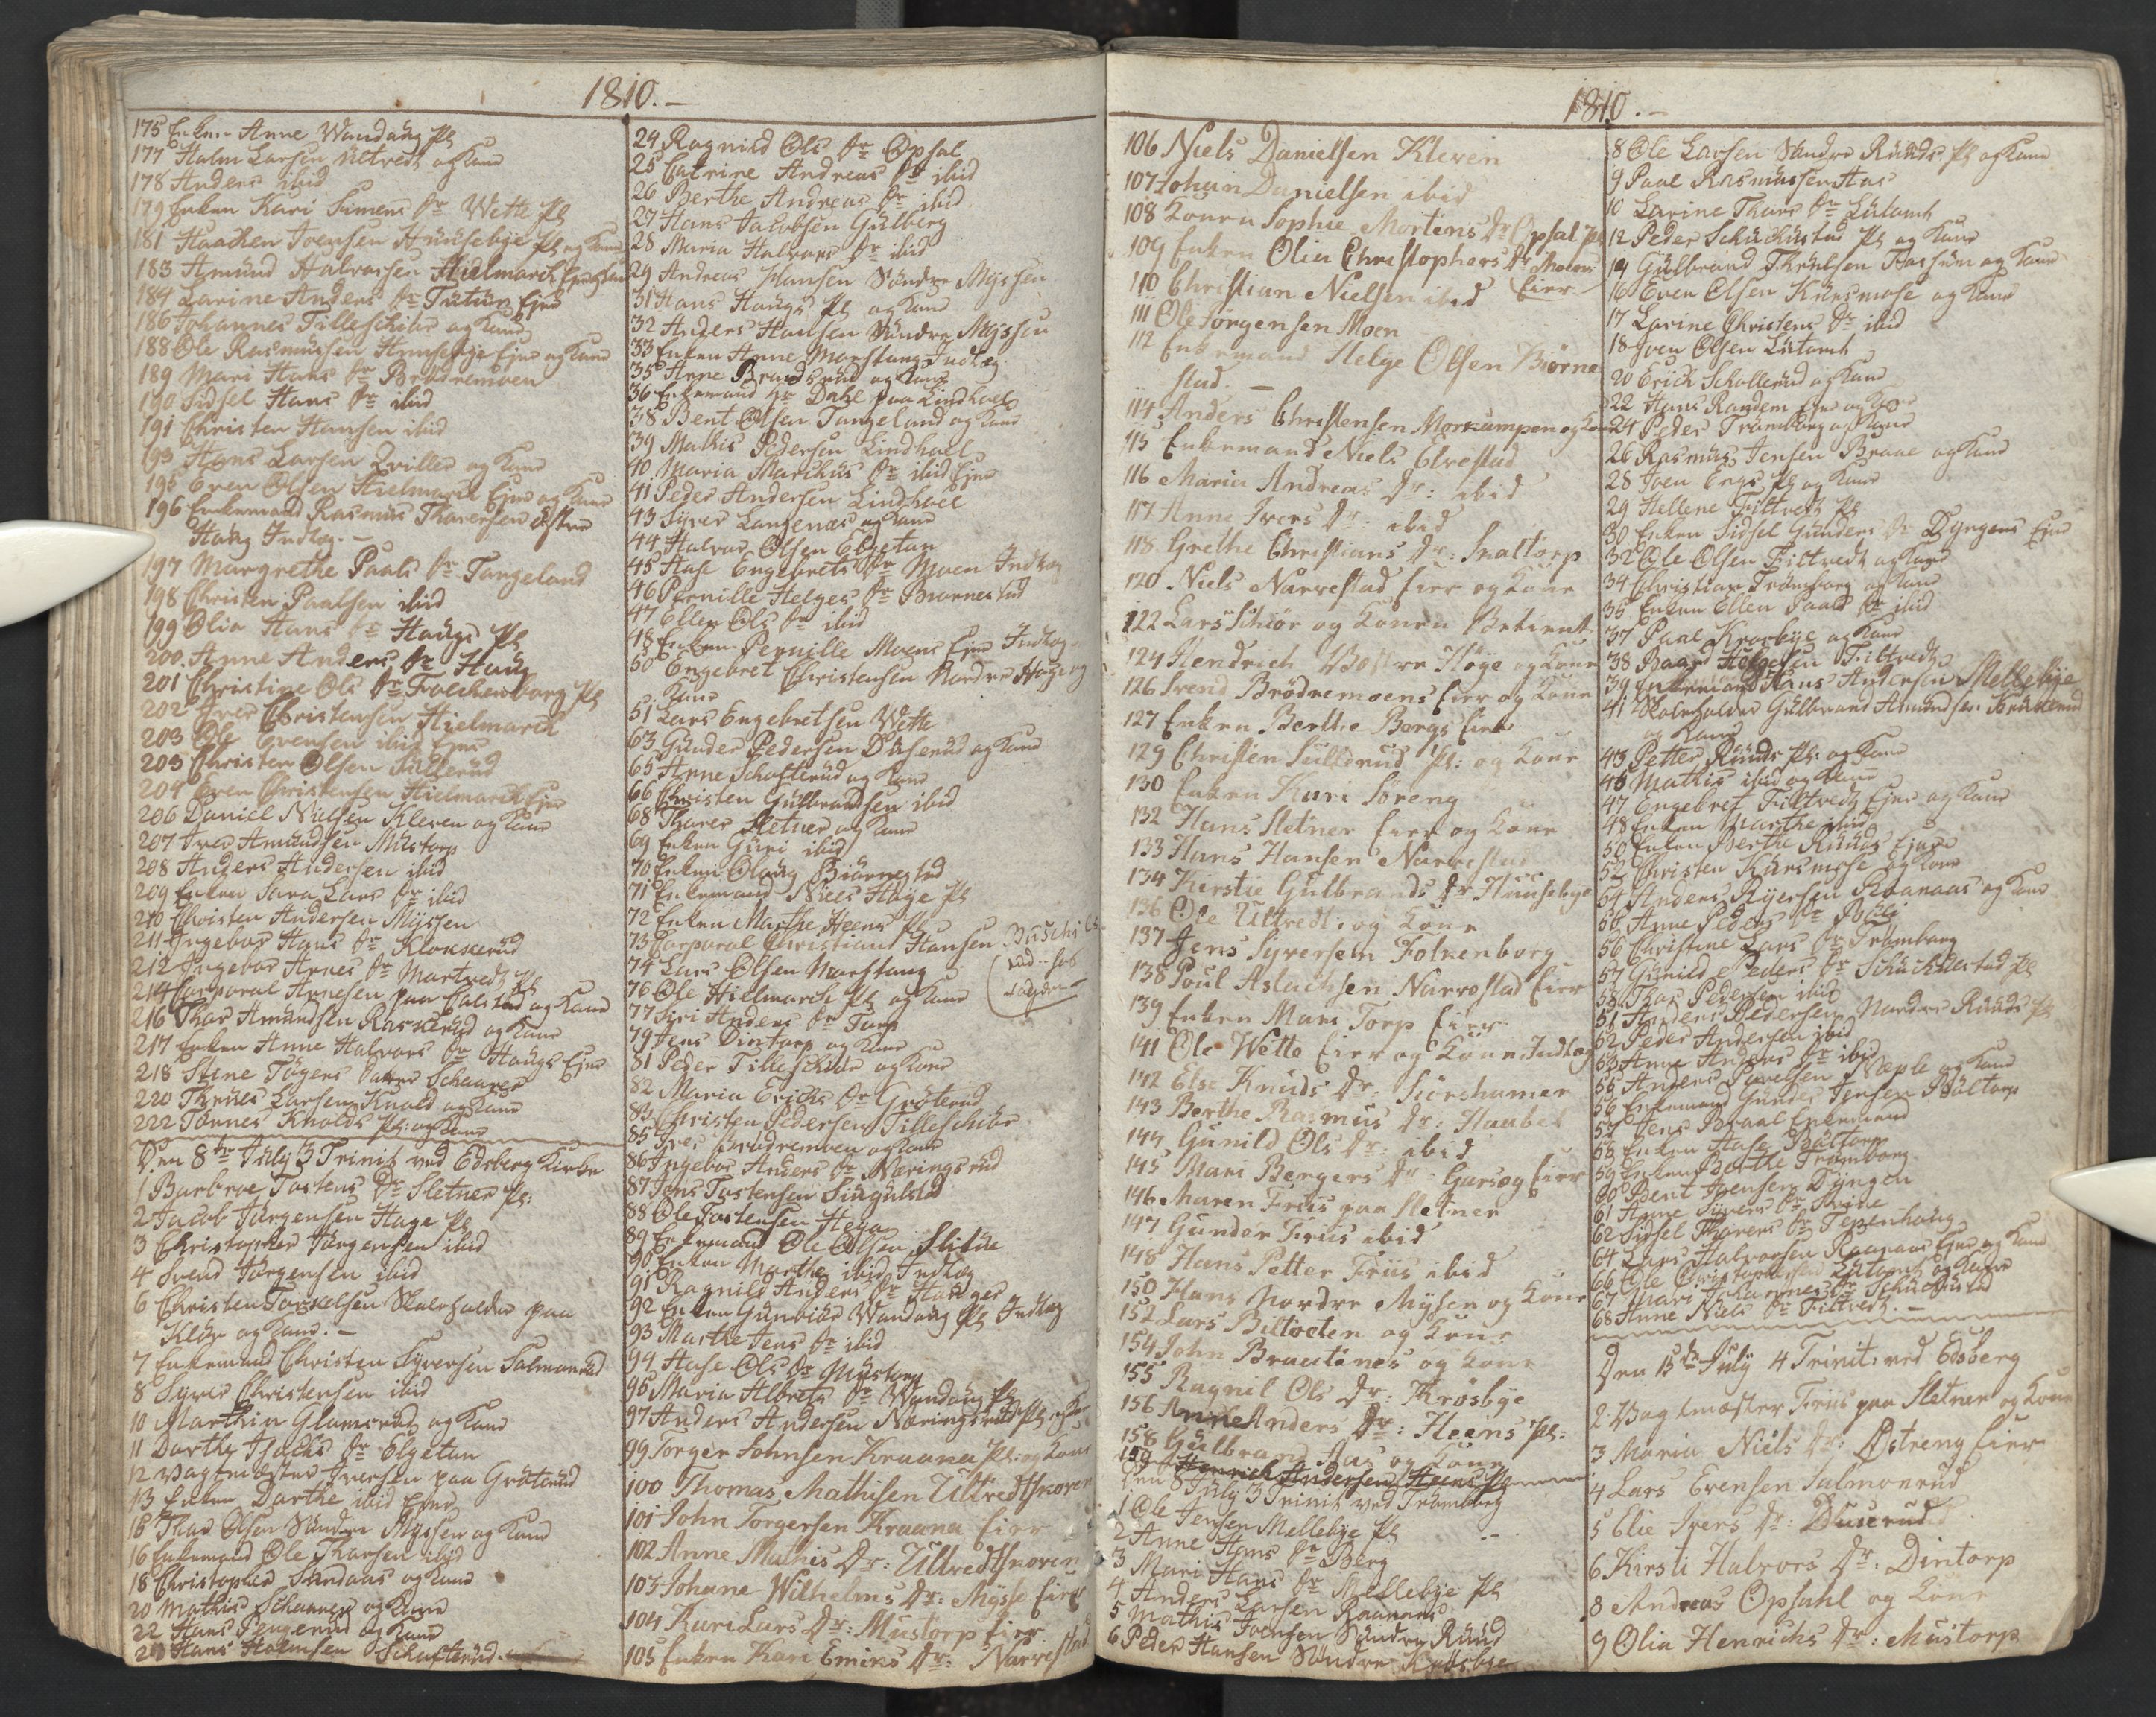 1810.-
175 Enken Anne Wandaug Pl
177 Halm Larsen Ultvedt og Kone
178 Anders ibid
179 Enken Kari Simens Dr Wette Pl
181 Haachen Joensen Huusebye Pl og Kone
183 Amund Halvorsen Hielmarck
184 Larine Anders Dr Tutur Ejer
186 Johannes Tilleschibr og Kone
188 Ole Rasmussen Huusebye Ejer og Kone
189 Mari Hans Dr Brödremoen
190 Sidsel Hans Dr ibid
191 Christen Hansen ibid
193 Hans Larsen Qviller og Kone
195 Even Olsen Hielmarck Ejer og Kone
196 Enkemand Rasmus Thoresen østre
Haug Indtog.-
197 Margrethe Paals Dr Tangeland
198 Christen Paalsen ibid
199 Olia Hans Dr Haugs Pl
200. Anne Anders Dr Haug
201 Christine Ols Dr Froechenborg Pl
202 Iver Christensen Hielmarck
203 Ole Evensen ibid Ejer
203 Christen Olsen Sullerud
204 Even Christensen Hielmarck Ejer
206 Daniel Nielsen Kleven og Kone
207 Iver Amundsen Mustorp
208 Anders Andersen ibid
209 Enken Sara Lars Dr ibid
210 Christen Andersen Myssen
211 Ingebor Hans Dr Klokkerud
212 Ingebor Arnes Dr Martvedt Pl
214 Corporal Arnesen paa og Kone
216 Thor Amundsen Raskerud og Kone
217 Enken Anne Halvors Dr Haugs Ejer
218 Stene Tögers Datter Schaarer
220 Thrues Larsen Knold og Kone
222 Tönnes Knolds Pl: og Kone
Den 8de July 3 Trinit ved Edsberg Kirke
1 Barbroe Tostens Dr Sletner Pl:
2 Jacob Jörgensen Hage Pl
3 Christopher Jörgensen ibid
4 Svend Jörgensen ibid
6 Christen Torkelsen Skoleholder paa
Klör og Kone.-
7 Enkemand Christen Syversen Salmonrud
8 Syver Christensen ibid
10 Marthin Glamsrud og Kone
11 Dorthe Isachs Dr Elgetun
12 Vagtmester Iversen paa Gröterud
13 Enken Dorthe ibid Ejer
15 Thor Olsen Söndre Myssen og Kone
16 Enkemand Ole Thorsen ibid
18 Christopher Sandaas og Kone
20 Mathis Schaarer og Kone
22 Hans Pengerud og Kone
24 Hans Holmsen Schofterud.
24 Ragnild Ols Dr Opsal
25 Catrine Andreas Dr ibid
26 Berthe Andreas Dr ibid
27 Hans Jacobsen Gulberg
28 Maria Halvors Dr ibid
29 Andreas Hansen Söndre Myssen
31 Hans Haugs Pl og Kone
32 Anders Hansen Söndre Myssen
33 Enken Anne Morstang Indtog
35 Arne Brandsrud og Kone
36 Enkemand Hr Dahl paa Lindhoel
38 Bent Olsen Tangeland og Kone
39 Mathis Pedersen Lindhoel
40. Maria Marchus Dr ibid Ejer
41 Peder Andersen Lindhoel
43 Syver Langenæs og Kone
44 Halvor Olsen Elgetun
45 Aase Engebrets Dr Moen Indtog
46 Pernille Helges Dr Biørnestad
47 Ellen Ols Dr ibid
48 Enken Pernille Moens Ejer Indtog.
50 Engebret Christensen Nordre Hage og
Kone
51 Lars Engebretsen Wette
63 Gunder Pedersen Duserud og Kone
65 Anne Schofterud og Kone
66 Christen Gulbrandsen ibid
68 Thorer Sletner og Kone
69 Enken Guri ibid
70 Enken Olaug Biørnestad
71 Enkemand Niels Høye Pl
72 Enken Marthe Heens Pl
73 Corporal Christian Hansen
74 Lars Olsen Morstang
76 Ole Hielmarch Pl og Kone
77 Siri Anders Dr Turs
79 Jens Dintorp og Kone
81 Peder Tilleschibr og Kone
82 Maria Erichs Dr Gröterud
83 Christen Pedersen Tilleschibr
85 Iver Brödremoen og Kone
86 Ingebor Anders Dr Næringsrud
87 Jens Tostensen Singulstad
88 Ole Tostensen Heyas
89 Enkemand Ole Olsen Slitue
90 Enken Marthe ibid Indtog
91 Ragnild Anders Dr Hauger
92 Enken Gunbiör Wandaug Pl Indtog
93 Marthe Jens Dr ibid
94 Aase Ols Dr Mustorp
95 Maria Albrets Dr Wandaug Pl
97 Anders Andersen Næringsrud Pl og Kone
99 Torger Johnsen Kraana Pl: og Kone
100 Thomas Mathisen Ultvedtskoven
101 John Torgersen Kraana Eier
102 Anne Mathis Dr: Ultvedtskoven
103 Johane Wilhelms Dr: Mysse Eier
104 Kari Lars Dr: Mustorp Eier
105 Enken Kari Emiks Dr: Narvestad
1810.-
106 Niels Danielsen Kleven
107 Johan Danielsen ibid
108 Konen Sophie Mortens Dr Opsal Pl
109 Enken Olia Christophers Dr Moens
Eier
110 Christian Nielsen ibid
111 Ole Jörgensen Moen
112 Enkemand Helge Olsen Biörne
stad.-
114 Anders Christensen Morkumpen og Kone
115 Enkemand Niels Elvestad
116 Maria Andreas Dr: ibid
117 Anne Ivers Dr: ibid
118 Grethe Christians Dr: Snaltorp
120 Niels Narvestad Eier og Kone
122 Lars Schiör og Konen Betient
124 Hendrich Vostre Höye og Kone
126 Svend Brödremoens Eier og Kone
127 Enken Berthe Bergs Eier
129 Christen Sullerud Pl: og Kone
130 Enken Kari Soreng
132 Hans Sletner Eier og Kone
133 Hans Hansen Narvestad
134 Kirstie Gulbrands Dr Huusebye
136 Ole Ultvedt og Kone
137 Jens Syversen Folkenborg
138 Poul Aslachsen Narvestad Eier
139 Enken Mari Torp Eier
141 Ole Wette Eier og Kone Indtog
142 Else Knuds Dr: Surshamer
143 Berthe Rasmus Dr: Haabet
144 Gunild Ols Dr: ibid
145 Mari Bergers Dr: Garseg Eier
146 Maren Friis paa Sletner
147 Gunder Friis ibid
148 Hans Petter Friis ibid
150 Hans Nordre Mysen og Kone
152 Lars Biltveten og Kone
154 John Brautenes og Kone
155 Ragnil Ols Dr: Krösbye
156 Anne Anders Dr: Heens Pl:
158 Gulbrand Aas og Kone
159 Henrich Andersen Heens Pl
Den 8 July 3 Trinit ved Trömborg
1 Ole Jensen Mellebye Pl
2 Anne Hans Dr Berg
3 Mari Hans Dr Mellebye Pl
4 Anders Larsen Raanaas
5 Mathis Joensen Söndre Ruud
6 Peder Hansen Söndre Krosbye
8 Ole Larsen Söndre Ruuds Pl og Kone
9 Paal Rasmussen Aas
10 Larine Thors Dr Lutomt
12 Peder Schuckustad Pl og Kone
14 Gulbrand Thrulsen Fossum og Kone
16 Even Olsen Kursmose og Kone
17 Larine Christens Dr ibid
18 Joen Olsen Lutomt
20 Erich Schollerud og Kone
22 Hans Randem Ejer og Kone
24 Peder Trömborg og Kone
26 Rasmus Jensen Braae og Kone
28 Joen Engs Pl og Kone
29 Hellene Filtvedt Pl
30 Enken Sidsel Gunders Dr Dyngens Ejer
32 Ole Olsen Filtvedt og Kone
34 Christian Trömborg og Kone
35 Enken Ellen Paals Dr ibid
37 Paal Krosbye og Kone
38 Baard Helgesen Filtvedt
39 Enkemand Hans Andersen Mellebye
41 Skoleholder Gulbrand Amundsen
og Kone
43 Petter Ruuds Pl: og Kone
45 Mathis ibid og Kone
47 Engebret Filtvedt Ejer og Kone
48 Enken Marthe ibid
50 Enken Berthe Ruuds Ejer
52 Christen Kursmose og Kone
54 Anders Ryersen Raanaas og Kone
55 Anne Peders Dr
56 Christine Lars Dr Trömborg
57 Gunild Peders Dr Schuckustad Pl
58 Thor Pedersen ibid
51 Anders Pedersen Nordre Ruuds Pl
52 Peder Andersen ibid
53 Anne Anders Dr ibid
55 Anders Povelsen Næple og Kone
56 Enkemand Gunder Jensen Poltorp
57 Jens Enkemand
58 Enken Aase Poltorp
59 Enken Berthe Trömborg
60 Bent Joensen Dyngen
61 Anne Syvers Dr
62 Sidsel Thorers Dr Teppenhaug
64 Lars Halvorsen Raanaas Ejer og Kone
66 Ole Christophersen Lutomt og Kone
67 Mari Johannes Dr Schuckustad
68 Anne Niels Dr Filtvedt.-
Den 15de July 4 Trinit: ved Edsberg
2 Vagtmester Friis paa Sletner og Kone
3 Maria Niels Dr: Østreng Eier
4 Lars Evensen Salmonrud
5 Elie Ivers Dr: Duserud
6 Kirsti Halvors Dr: Dintorp
8 Andreas Opsahl og Kone
9 Olia Henrichs Dr: Mustorp